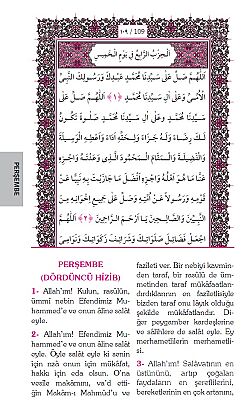 ١٠٩ / 109
اَلْحِزْبُ الرَّابِعُ فِي يَوْمِ الْخَمِيسِ
اَللّٰهُمَّ صَلِّ عَلٰى سَيِّدِنَا مُحَمَّدٍ عَبْدِكَ وَرَسُولِكَ النَّبِيِّ
الْاُمِّيِّ وَعَلٰى اٰلِ سَيِّدِنَا مُحَمَّدٍ ﴿١﴾ اَللّٰهُمَّ صَلِّ عَلٰى
سَيِّدِنَا مُحَمَّدٍ وَعَلٰى اٰلِ سَيِّدِنَا مُحَمَّدٍ صَلٰوةً تَكُونُ
لَكَ رِضَاءً وَلَهُ جَزَاءً وَلِحَقِّهِ اَدَاءً وَاَعْطِهِ الْوَسِيلَةَ
وَالْفَضِيلَةَ وَالْمَقَامَ الْمَحْمُودَ الَّذِي وَعَدْتَهُ وَاجْزِهِ
عَنَّا مَا هُوَ اَهْلُهُ وَاجْزِهِ اَفْضَلَ مَا جَازَيْتَ بِهِ نَبِيًّا عَنْ
قَوْمِهِ وَرَسُولًا عَنْ اُمَّتِهِ وَصَلِّ عَلٰى جَمِيعِ اِخْوَانِهِ مِنَ
النَّبِيِّينَ وَالصَّالِحِينَ يَا اَرْحَمَ الرَّاحِمِينَ ﴿٢﴾ اَللّٰهُمَّ
اجْعَلْ فَضَائِلَ صَلَوَاتِكَ وَشَرَائِفَ زَكَوَاتِكَ وَنَوَامِيَ
PERŞEMBE
PERŞEMBE
(DÖRDÜNCÜ HİZİB)
1- Allah'ım! Kulun, rasûlün,
ümmî nebin Efendimiz Mu-
hammed'e ve onun âline salât
eyle.
2- Allah'ım! Efendimiz Mu-
hammed'e ve onun âline salât
eyle. Öyle salât eyle ki senin
için rızâ onun için mükâfat,
hakkı için eda olsun. O'na
vesîle makâmını, va'd etti-
ğin Makâm-ı Mahmûd'u ve
fazîleti ver. Bir nebiyi kavmin-
den taraf, bir rasûlü de üm-
metinden taraf mükâfaatlan-
dırdıklarının en fazîletlisiyle
bizden taraf onu lâyık olduğu
şekilde mükâfatlandır. Diğer
peygamber kardeşlerine
ve sâlihlere de salât eyle. Ey
merhametlilerin merhametli-
si.
3- Allah'ım! Salâvatının en
üstününü, artıp çoğalan
faydaların en şereflilerini,
bereketlerinin en çok artanını,